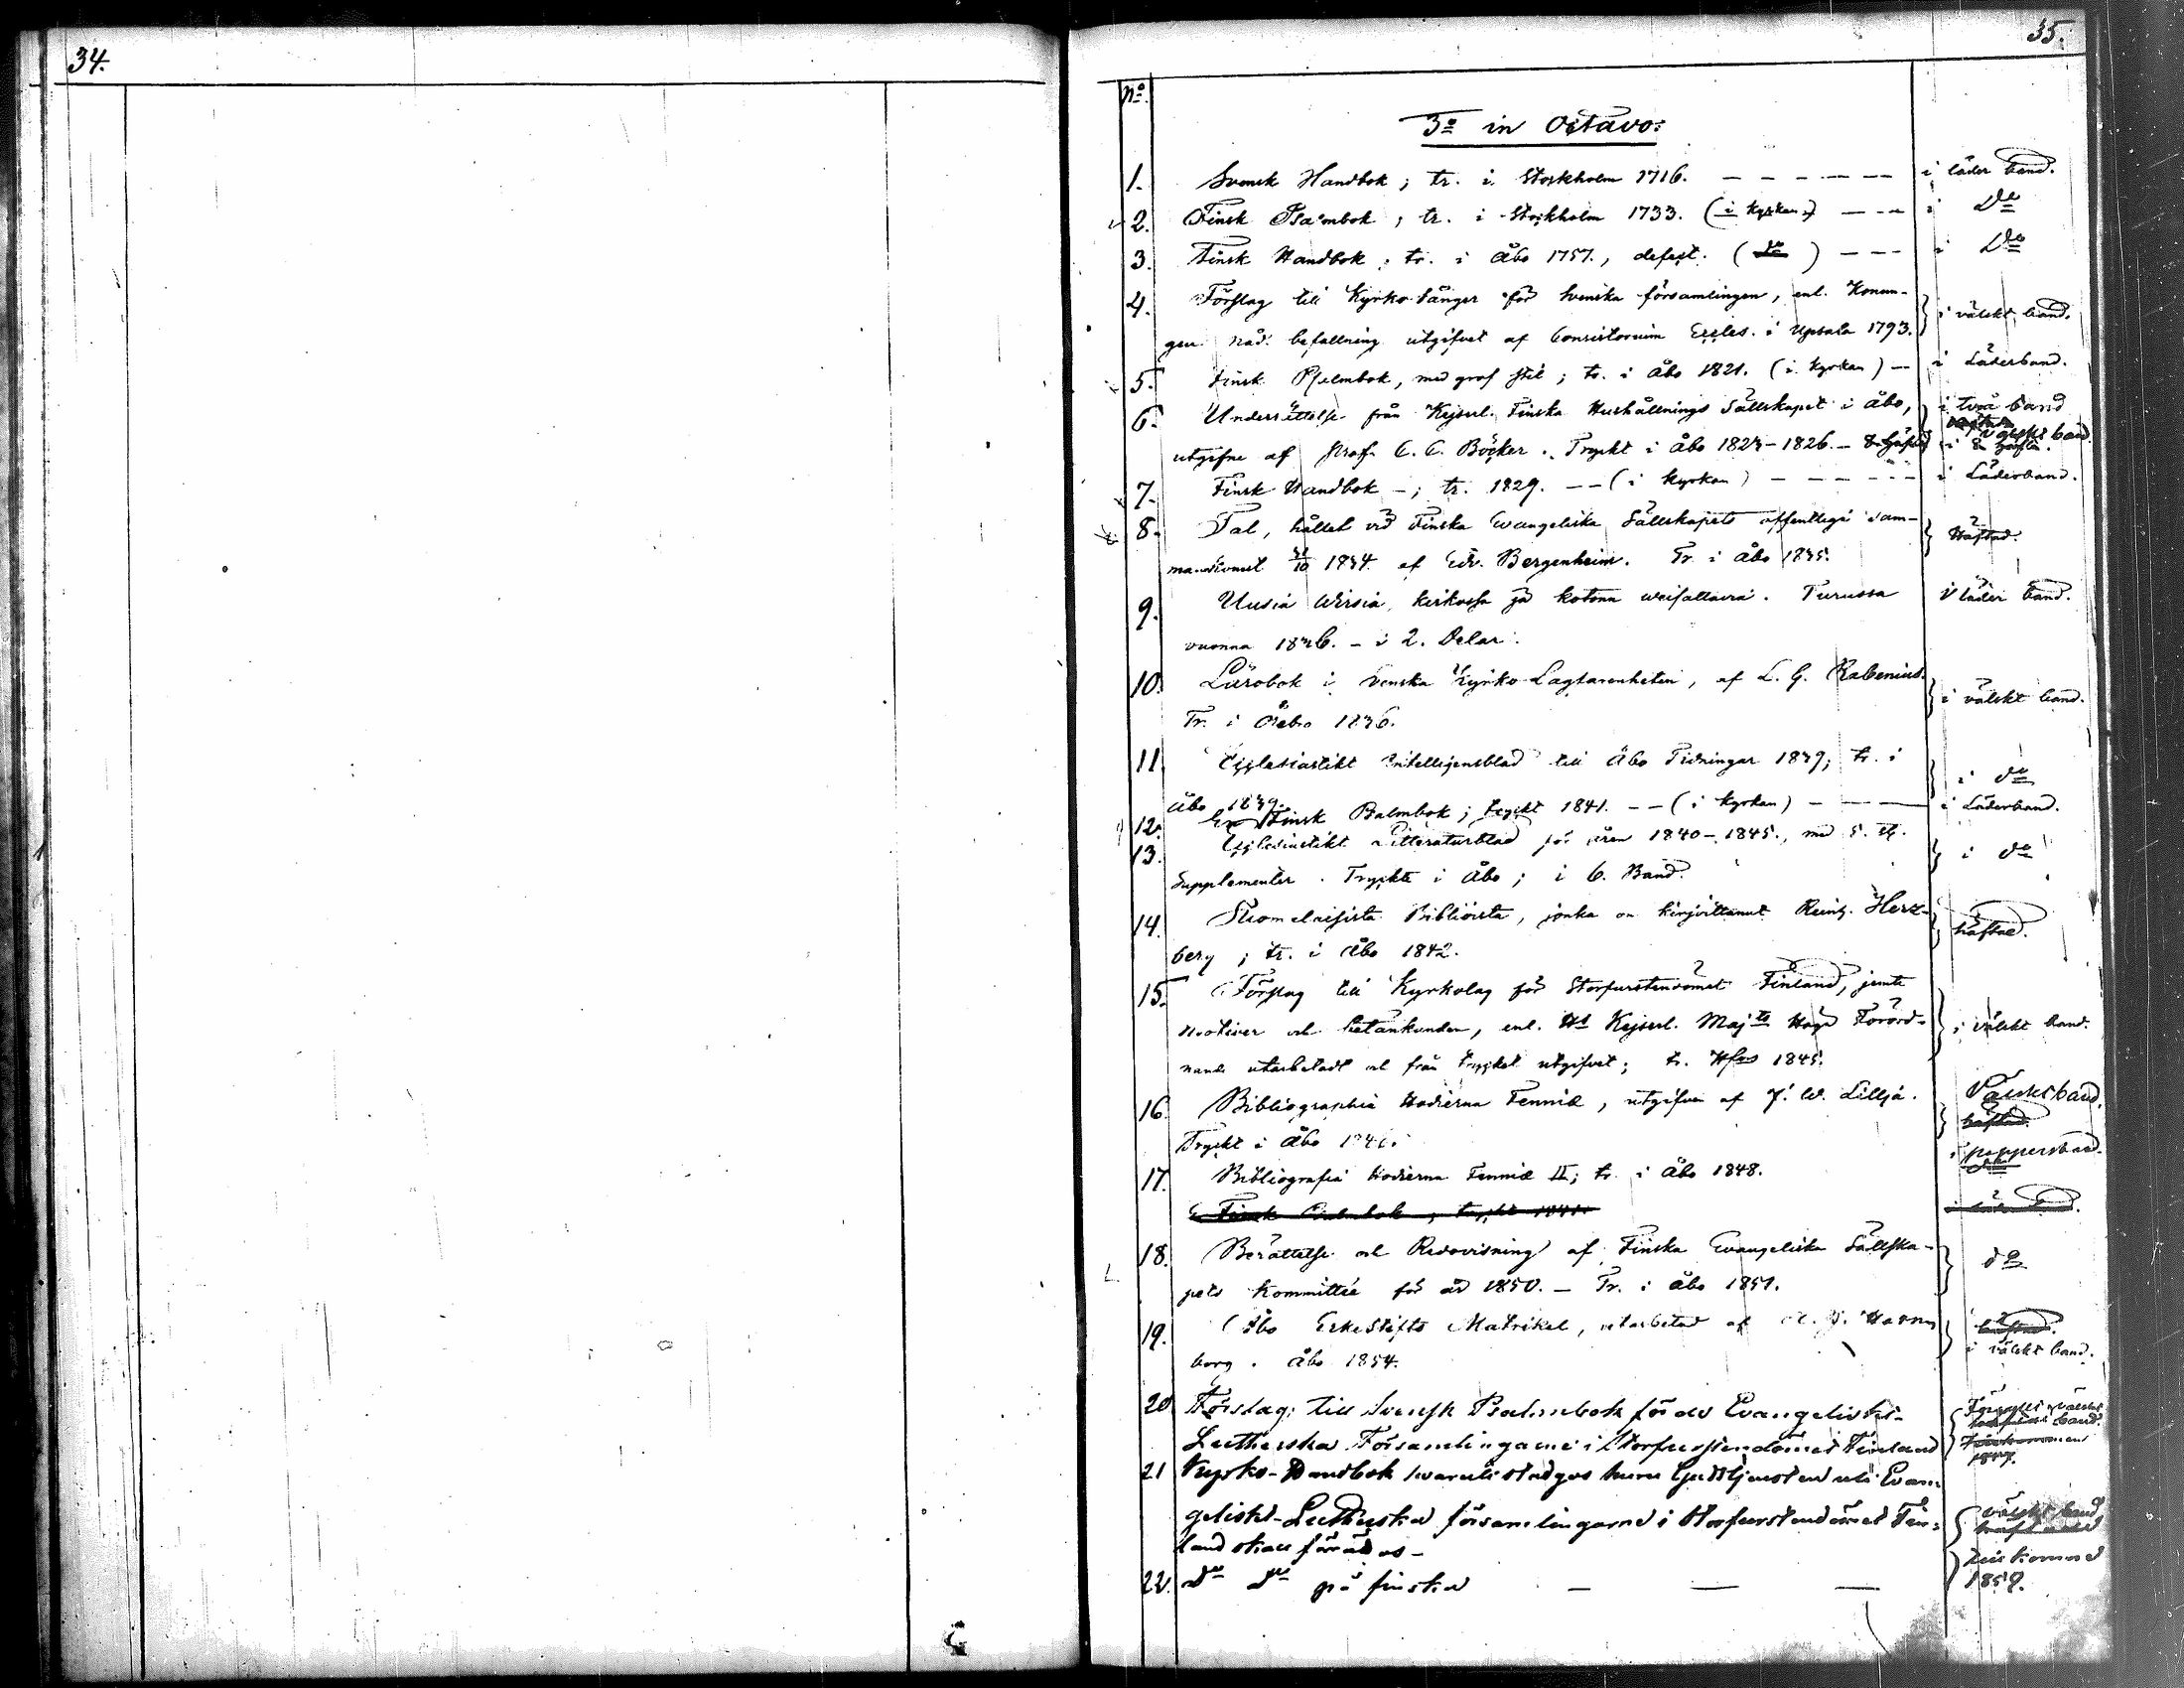 34.
35.
No.
3o in Octavo:
1. Svensk Handbok; tr. i Stockholm 1716. – – – – – – i läder band.
2. Finsk Psalmbok, tr. i Stockholm 1733. (i kyrkan) – – – i Do
3. Finsk Handbok; tr. i Åbo 1757., defect. (do) – – – i Do
4. Förslag till Kyrko-Sånger för Svenska församlingen, enl. Konun- i välskt band.
gen nåd. befallning utgifvet af Consistorium Eccles. i Upsala 1793.
5. Finsk Psalmbok, med grof stil; tr. i Åbo 1821. (i kyrkan) – i Läderband.
6. Underrättelse från Kejserl. Finska Hushållnings Sällskapet i Åbo, i två band
utgifne af Prof. C. C. Böcker. Tryckt i Åbo 1823–1826. –
7. Finsk Handbok –; tr. 1829. – – (i kyrkan) – – – – – i Läderband.
8. Tal, hållet vid Finska Evangeliska Sällskapets offentliga sam- Häftad.
mankomst 1834 af Edv. Bergenheim. Tr. i Åbo 1835.
9. Uusia Wirsiä, kirkossa ja kotona weisattavia. Turussa i läder band.
vuonna 1836. – i 2. Delar.
10. Lärobok i Svenska Kyrko-Lagfarenheten, af L. G. Rabenius. i välskt band.
Tr. i Örebro 1836.
11. Ecclesiastikt Intelligensblad till Åbo Tidningar 1839; tr. i i do
Åbo 1839.
12. Finsk Psalmbok; tryckt 1841. – – (i kyrkan) – – – i Läderband.
13. Ecclesiastikt Litteraturblad för åren 1840–1845., med 5. st. i do
Supplementer. Tryckte i Åbo; i 6. Band.
14. Suomalaisista Biblioista, jonka on kirjoittanut Reinh. Herz- häftad.
berg; tr. i Åbo 1842.
15. Förslag till Kyrkolag för Storfurstendömet Finland, jemte
motiver och betänkanden, enl. Hs Kejserl. Majts Höga Förord- i välskt band.
nande utarbetadt och från trycket utgifvet; tr. Hfors 1845.
16. Bibliographia Hodierna Fenniæ, utgifven af J. W. Lilljá. Välskt band.
häftad.
Tryckt i Åbo 1846.
17. Bibliografia Hodierna Fenniæ II; tr. i Åbo 1848. i pappersband.
Finsk Psalmbok; tryckt 1841. i läder band.
18. Berättelse och Redovisning af Finska Evangeliska Sällska- do
pets Kommittée för år 1850. – Tr. i Åbo 1851.
19. Åbo ErkeStifts Matrikel, utarbetad af häftad.
borg. Åbo 1854. i välskt band.
20 Förslag till Svensk Psalmbok för de Evangeliskt-
Lutherska Församlingarne i Storfurstendömet Finland
21 Kyrko-Handbok hvaruti stadgas huru Gudstjensten uti Evan-
geliskt-Lutherska församlingarne i Storfurstendömet Fin- välskt band
land skall förrättas –
22. do do på finska – – – Inkommo
1859.